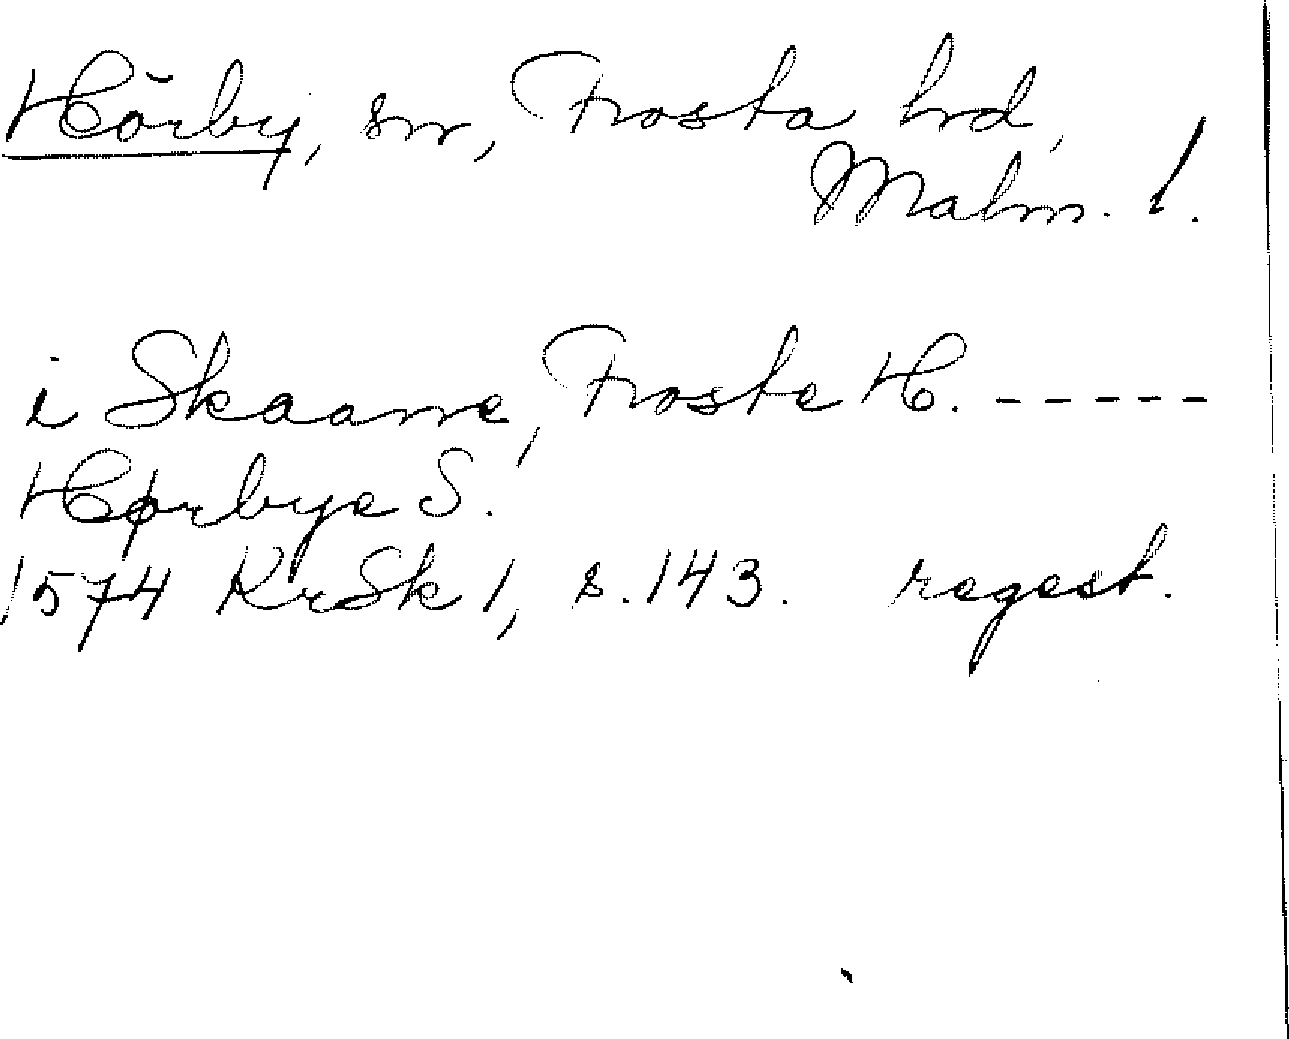 Hörby, sn, Frosta hd,
Malm. l.
i Skaane, Froste H. -----
Hørbye S.
1574 KrSk 1, s. 143. regest.